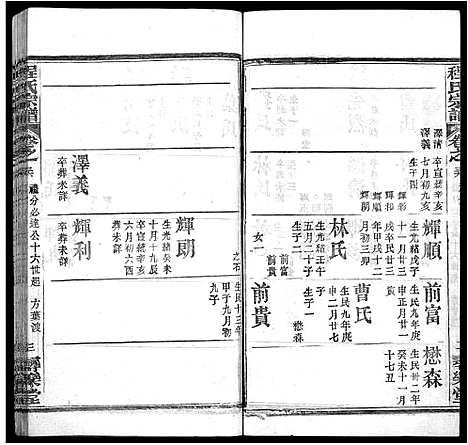 程氏宗譜
卷之
澤清
澤義
生宣統辛亥
七月初九亥
卒
生子
輝順
輝彩
輝朗
輝順
生光緒戊子
十一月廿三
戌卒民辛巳
年甲戌十二
月初三卯
林氏
生光緒壬午
五月二十子
生子二
前富
前貴
女一
前富
生民九年庚
申正月廿一
寅
曹氏
生民九年庚
申二月廿七
生子一
懋森
前貴
生民十三年
甲子九月初
九子
懋森
生民卅二年
癸未十一月
十七丑
輝朗
生光緒癸未
十月十九辰
卒宣統辛亥
六月初六酉
葬未詳
輝利
卒葬未詳
澤義
卒葬未詳
程氏宗譜
卷之
禮分必達公十六世起
方葉渡
三